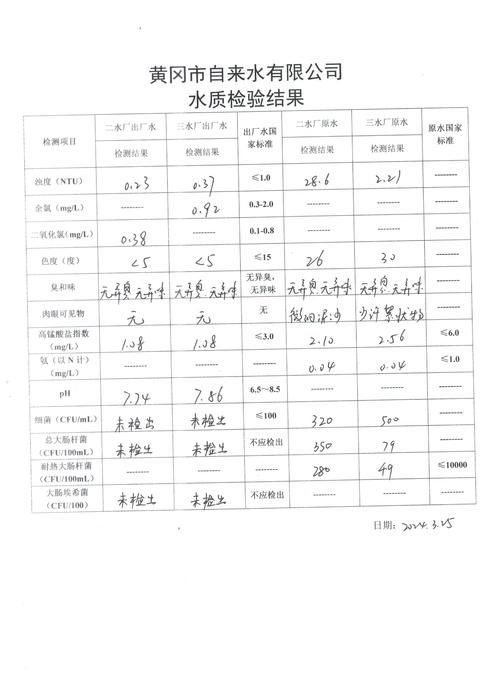 黄冈市自来水有限公司
水质检验结果
检测项目 二水厂出厂水 三水厂出厂水 出厂水国家标准 二水厂原水 三水厂原水 原水国家标准
检测结果 检测结果 检测结果 检测结果
浊度(NTU) 0.23 0.37 ≤1.0 28.6 2.21 --------
余氯(mg/L) -------- 0.92 0.3-2.0 -------- -------- --------
二氧化氯(mg/L) 0.38 -------- 0.1-0.8 -------- -------- --------
色度(度) <5 <5 ≤15 26 30 --------
臭和味 无异臭.无异味 无异臭.无异味 无异臭,无异味 无异臭.无异味 无异臭.无异味 --------
肉眼可见物 无 无 无 微的泥沙 少许絮状物 --------
高锰酸盐指数(mg/L) 1.08 1.08 ≤3.0 2.10 2.56 ≤6.0
氨(以N计)(mg/L) -------- -------- -------- 0.04 0.04 ≤1.0
pH 7.74 7.86 6.5~8.5 -------- -------- --------
细菌(CFU/mL) 未检出 未检出 ≤100 320 500 --------
总大肠杆菌(CFU/100mL) 未检出 未检出 不应检出 350 79 --------
耐热大肠杆菌(CFU/100mL) -------- -------- -------- 280 49 ≤10000
大肠埃希菌(CFU/100) 未检出 未检出 不应检出 -------- -------- --------
日期:2024.3.25